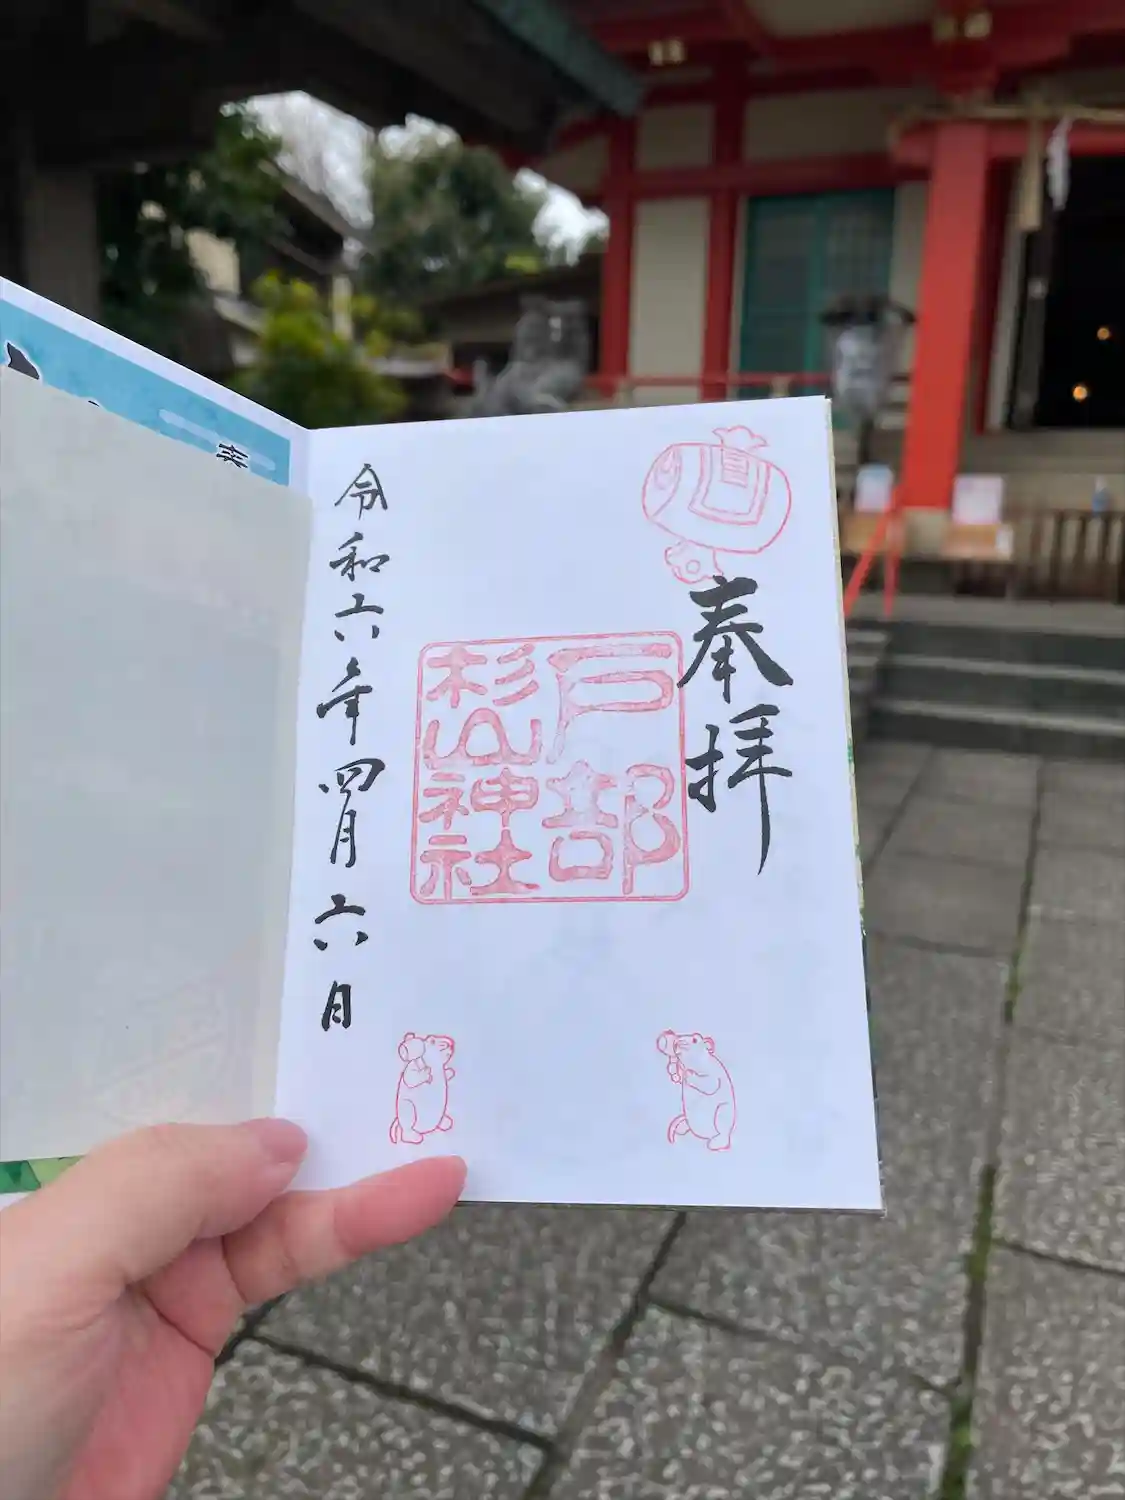 奉拝
戸部
杉山神社
令和六年四月六日